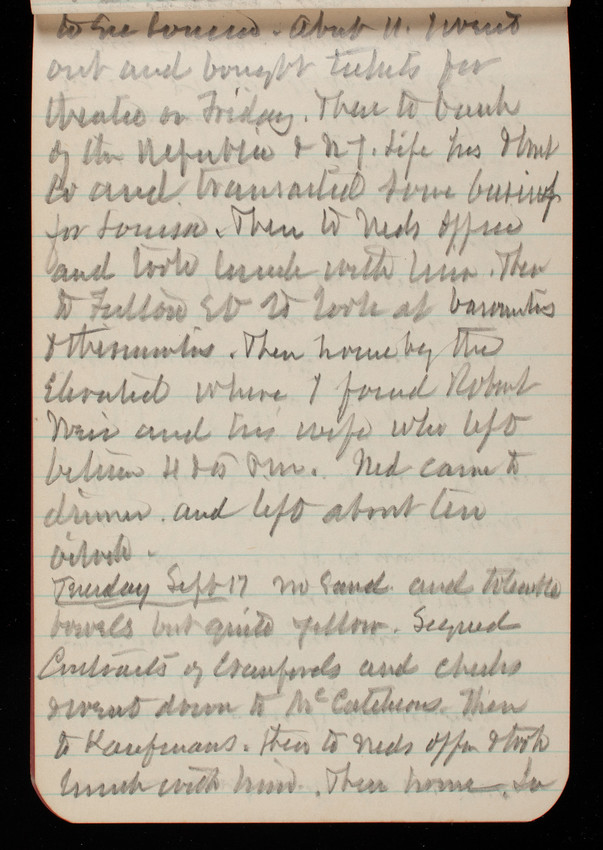 to see Louisa. About 11. I went
out and bought tickets for
theatre on Friday. Then to bank
of the Republic & N.Y. Life Ins & Trust
Co and transacted some business
for Louisa. Then to Neds office
and took lunch with him. Then
to Fulton St to look at barometers
& thermometers. Then home by the
Elevated where I found Robert
Weir and his wife who left
between 4 & 5 P.m. Ned came to
dinner. and left about ten
oclock.
Tuesday Sept 17 no sand. and tolerable
bowels but quite yellow. Signed
Contracts of Crawfords and checks
& went down to McCutcheons. Then
to Kaufmans. Then to Neds office & took
lunch with him. Then home.